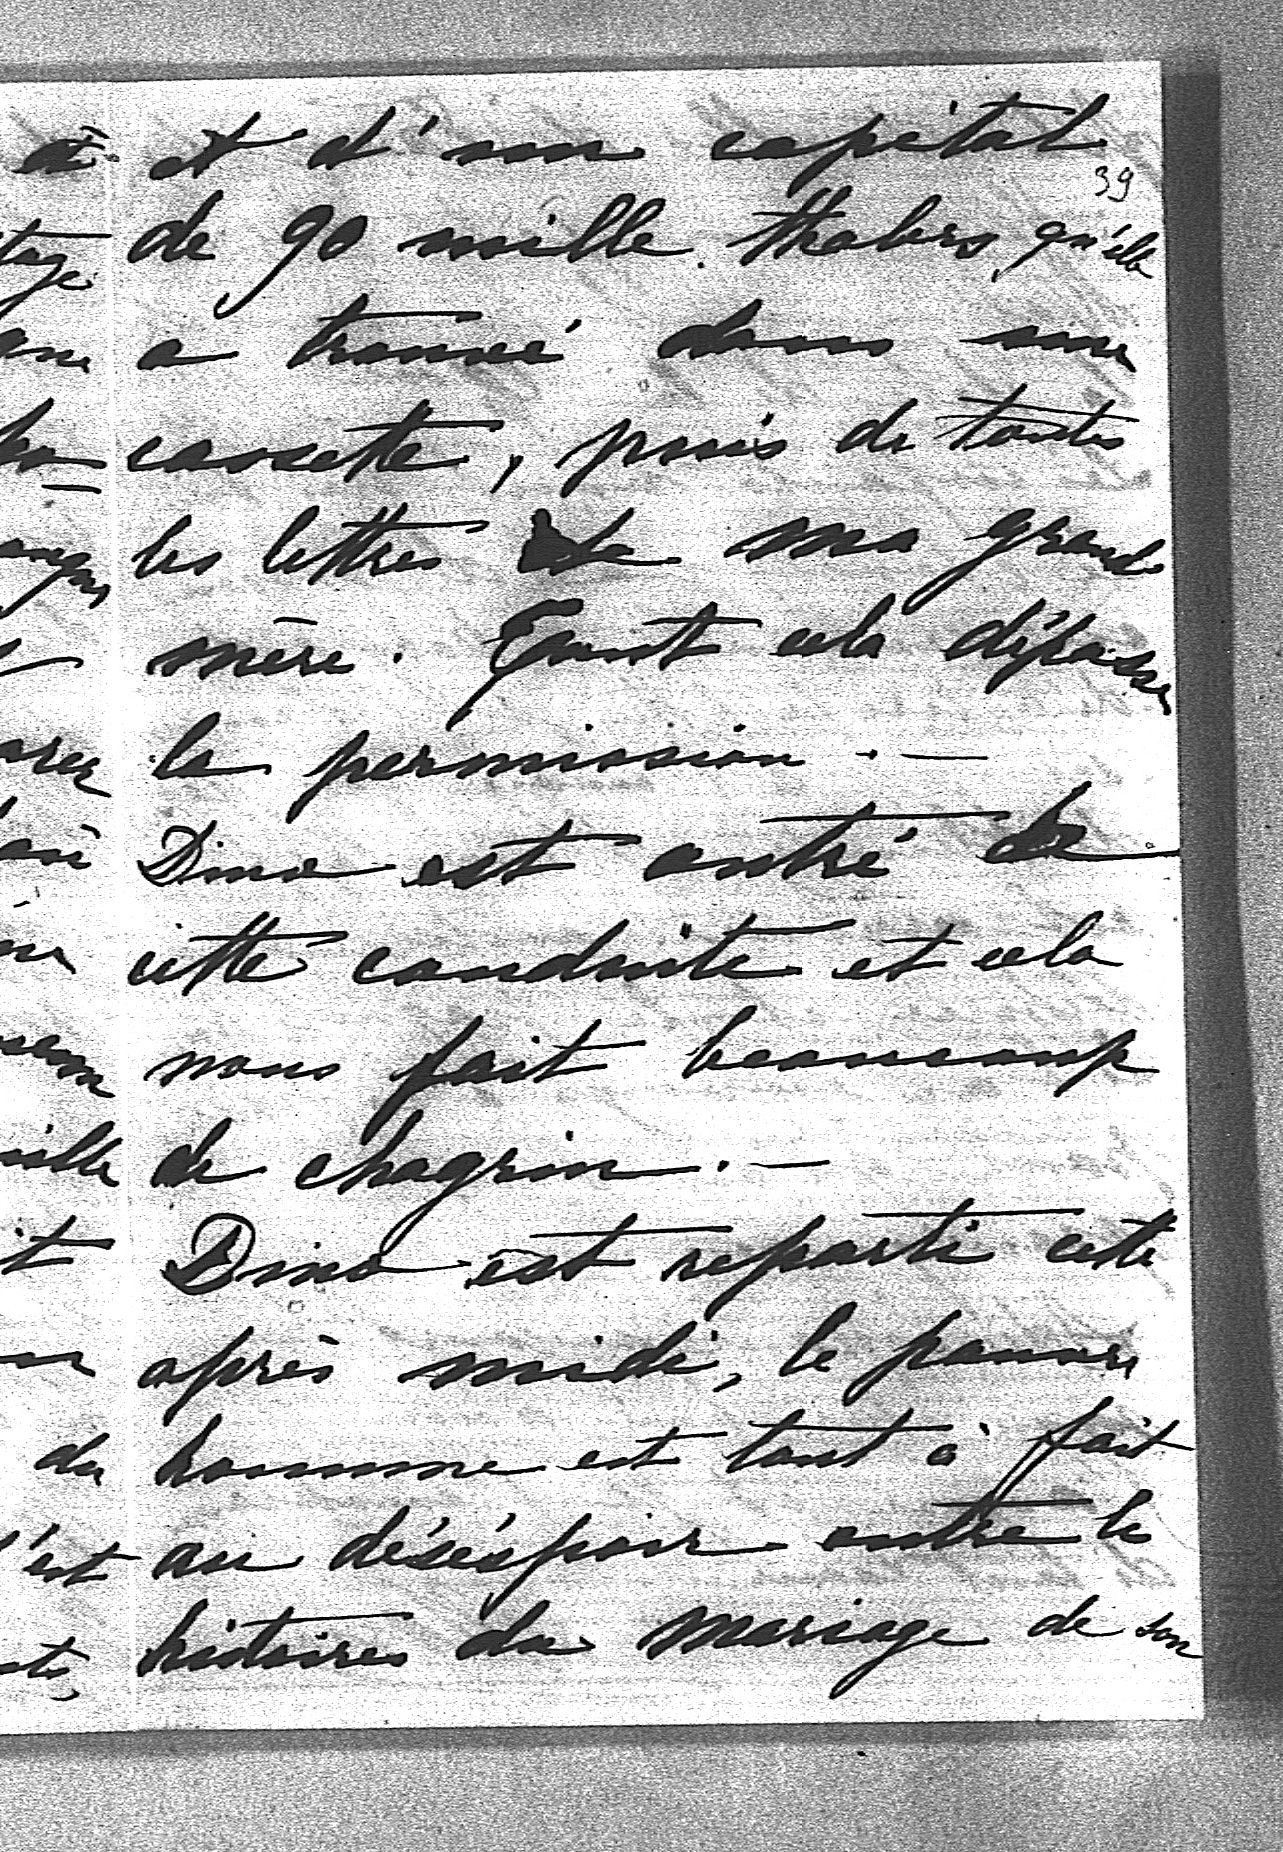 et d'un capital
39
de 90 mille thalers, qu'elle
a trouvé dans une
cassette, puis de toutes
les lettres de ma grand
mère. Tout cela dépasse
la permission. —
Dino est outré de
cette conduite et cela
nous fait beaucoup
de chagrin. —
Dino est reparti cette
après midi, le pauvre
homme est tout à fait
au déséspoir entre le
histoires du mariage de son